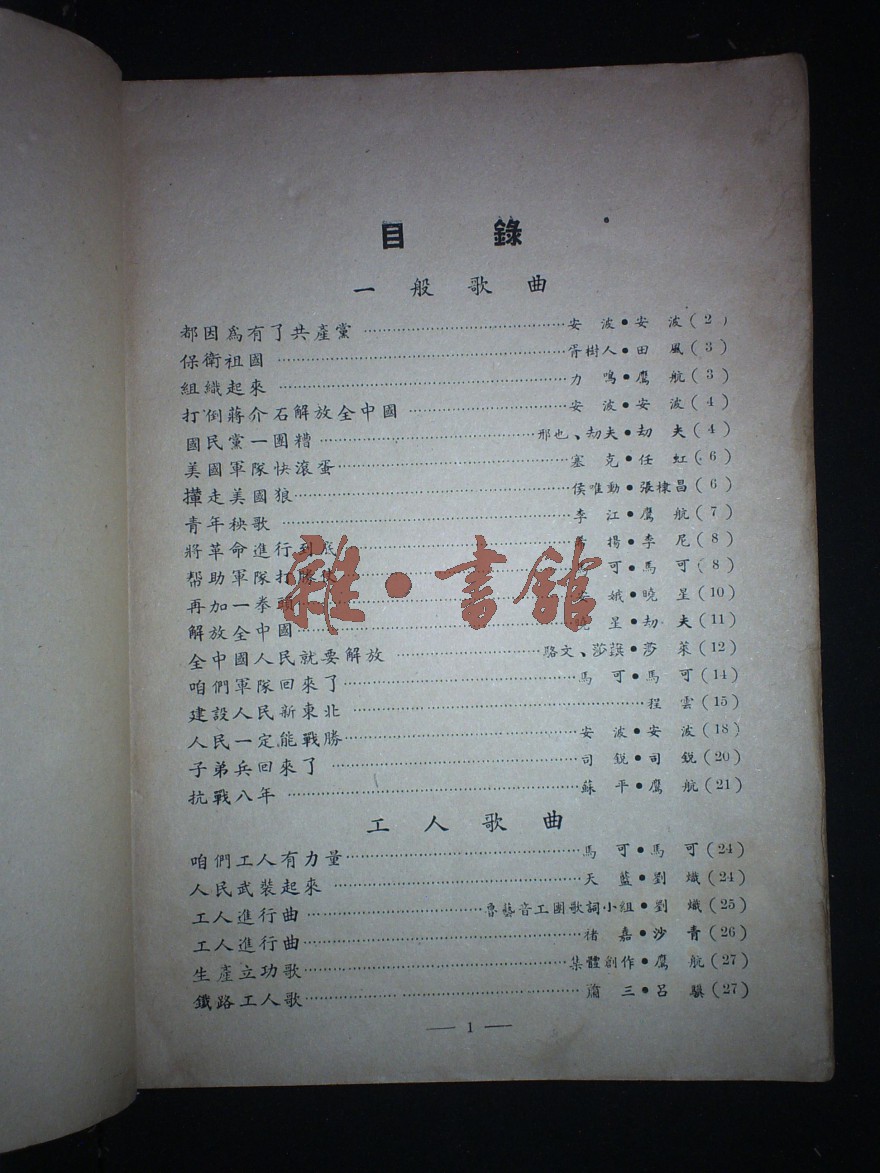 目 錄
一 般 歌 曲
都因為有了共產黨 安 波•安 波(2)
保衛祖國 胥樹人•田 風(3)
組織起來 力 鳴•鷹 航(3)
打倒蔣介石解放全中國 安 波•安 波(4)
國民黨一團糟 邢也、劫夫•劫 夫(4)
美國軍隊快滾蛋 塞 克•任 虹(6)
攆走美國狼 侯唯動•張棣昌(6)
青年秧歌 李 江•鷹 航(7)
將革命進行到底 揚•李 尼(8)
帮助軍隊打勝仗 可•馬 可(8)
再加一拳頭 娥•曉 星(10)
解放全中國 星•劫 夫(11)
全中國人民就要解放 駱文、莎蕻•莎 萊(12)
咱們軍隊回來了 馬 可•馬 可(14)
建設人民新東北 程 雲(15)
人民一定能戰勝 安 波•安 波(18)
子弟兵回來了 司 銳•司 銳(20)
抗戰八年 蘇 平•鷹 航(21)
工 人 歌 曲
咱們工人有力量 馬 可•馬 可(24)
人民武裝起來 天 藍•劉 熾(24)
工人進行曲 魯藝音工團歌詞小組•劉 熾(25)
工人進行曲 褚 嘉•沙 青(26)
生產立功歌 集體創作•鷹 航(27)
鐵路工人歌 蕭 三•呂 驥(27)
— 1 —
雜•書館